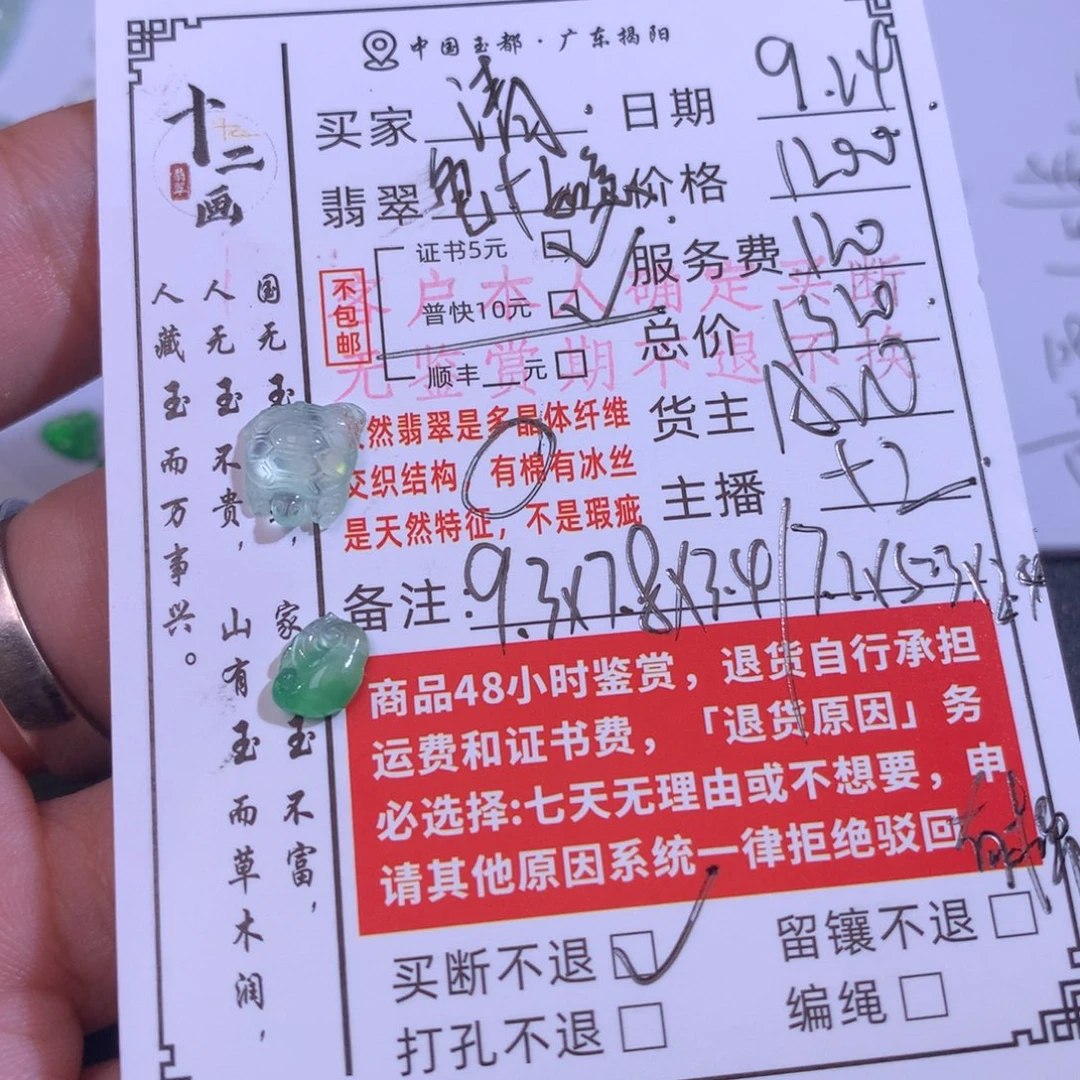 中国玉都·广东揭阳
十二画
翡翠
买家
日期 9.24
翡翠
价格
证书5元
服务费
不包邮
普快10元
总价
顺丰__元
客户本人确定买断
无鉴赏期不退不换
货主
天然翡翠是多晶体纤维
交织结构 有棉有冰丝
是天然特征,不是瑕疵
主播 十2
备注: 9.3x7.8x3.4/7.2x5.3x2.4
商品48小时鉴赏,退货自行承担
运费和证书费,「退货原因」务
必选择:七天无理由或不想要,申
请其他原因系统一律拒绝驳回
买断不退
留镶不退
打孔不退
编绳
国无玉不
家玉不富,
人无玉不贵,
山有玉而草木润,
人藏玉而万事兴。